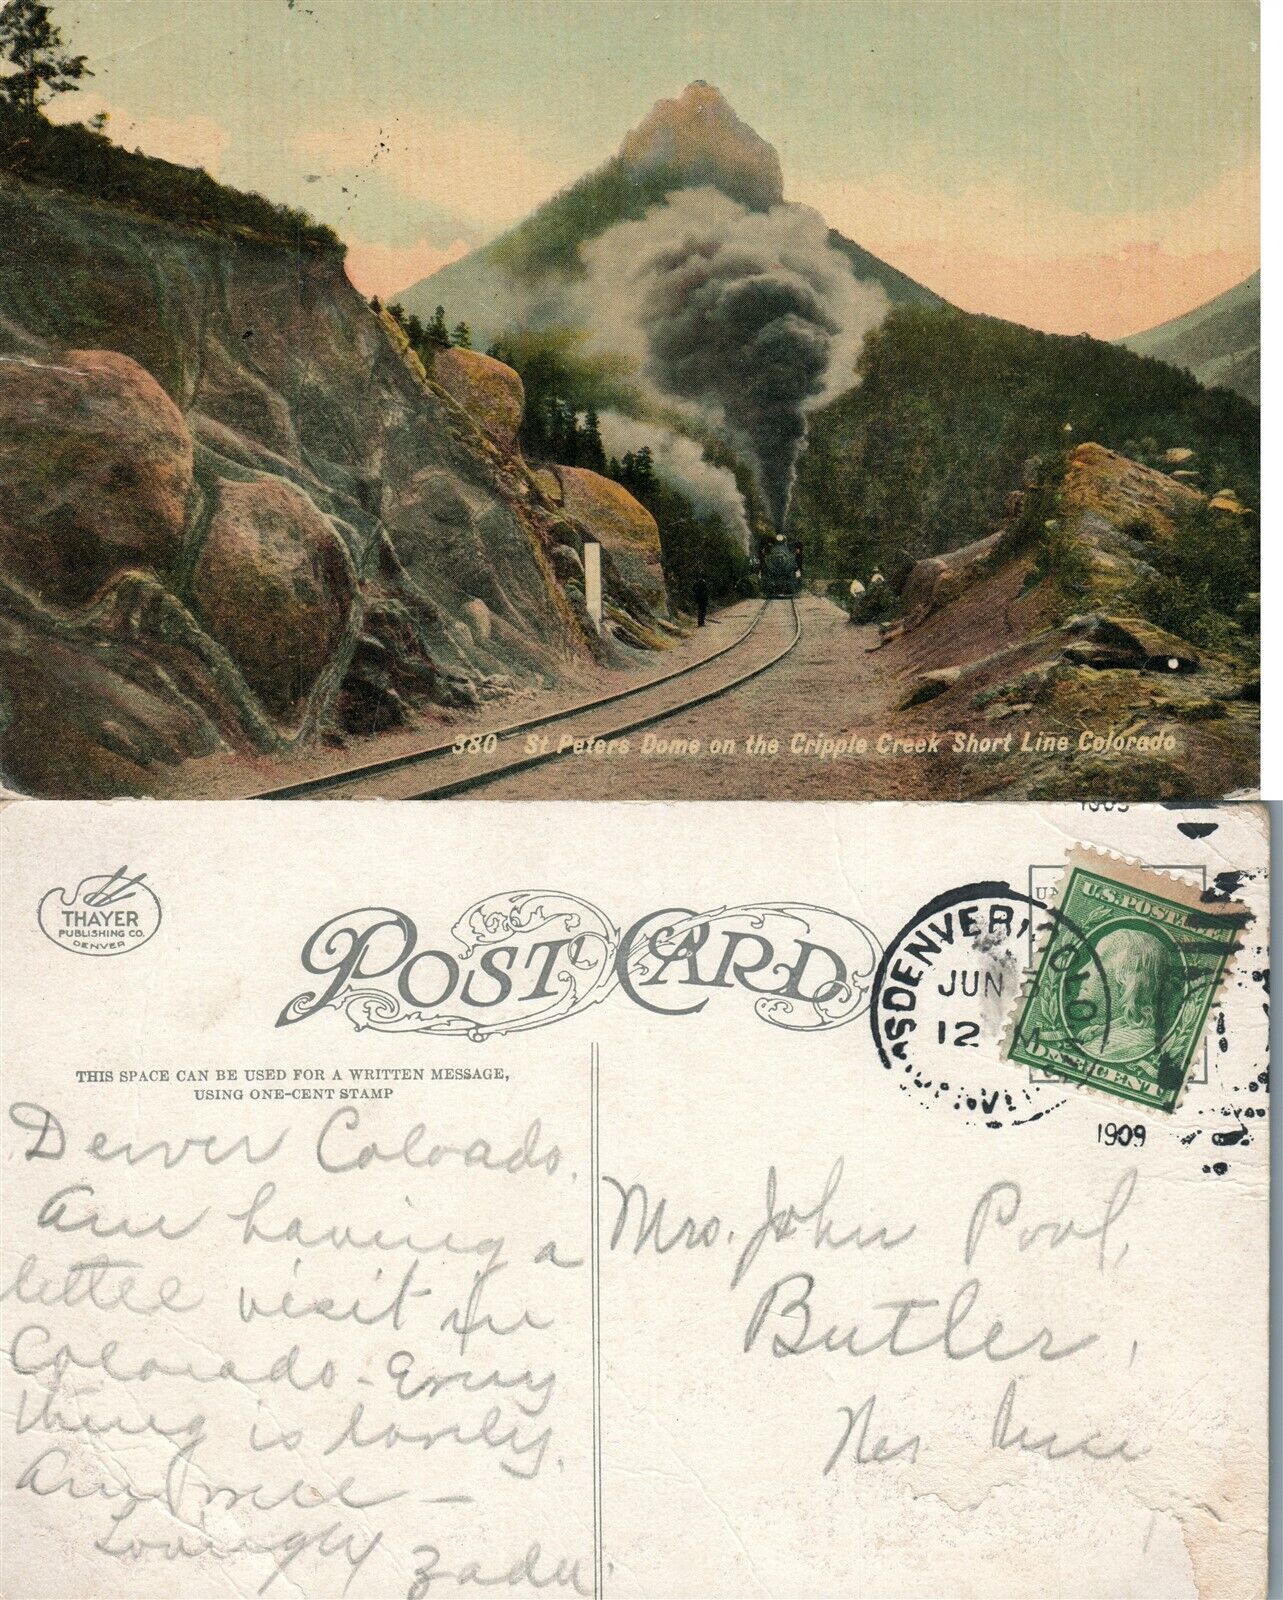 380 St Peters Dome on the Cripple Creek Short Line Colorado
THAYER
PUBLISHING CO.
DENVER
POST CARD
THIS SPACE CAN BE USED FOR A WRITTEN MESSAGE,
USING ONE-CENT STAMP
DENVER, COLO
JUN
12 M
1909
U.S. POSTAGE
ONE CENT
Denver Colorado.
Am having a
little visit in
Colorado - Every
thing is lovely.
Am well -
Lovingly Zada.
Mrs. John Pool,
Butler,